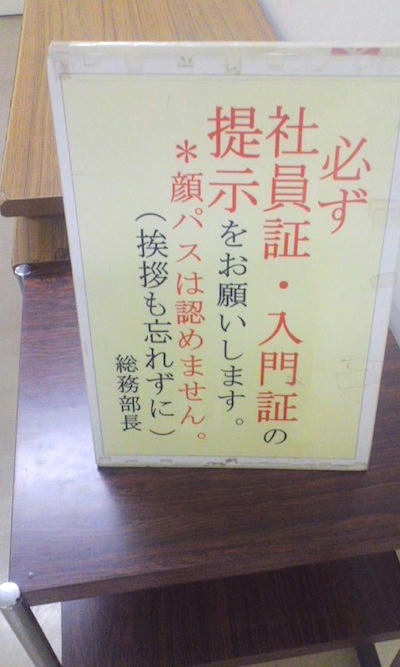 必ず
社員証・入門証の
提示をお願いします。
＊顔パスは認めません。
（挨拶も忘れずに）
総務部長